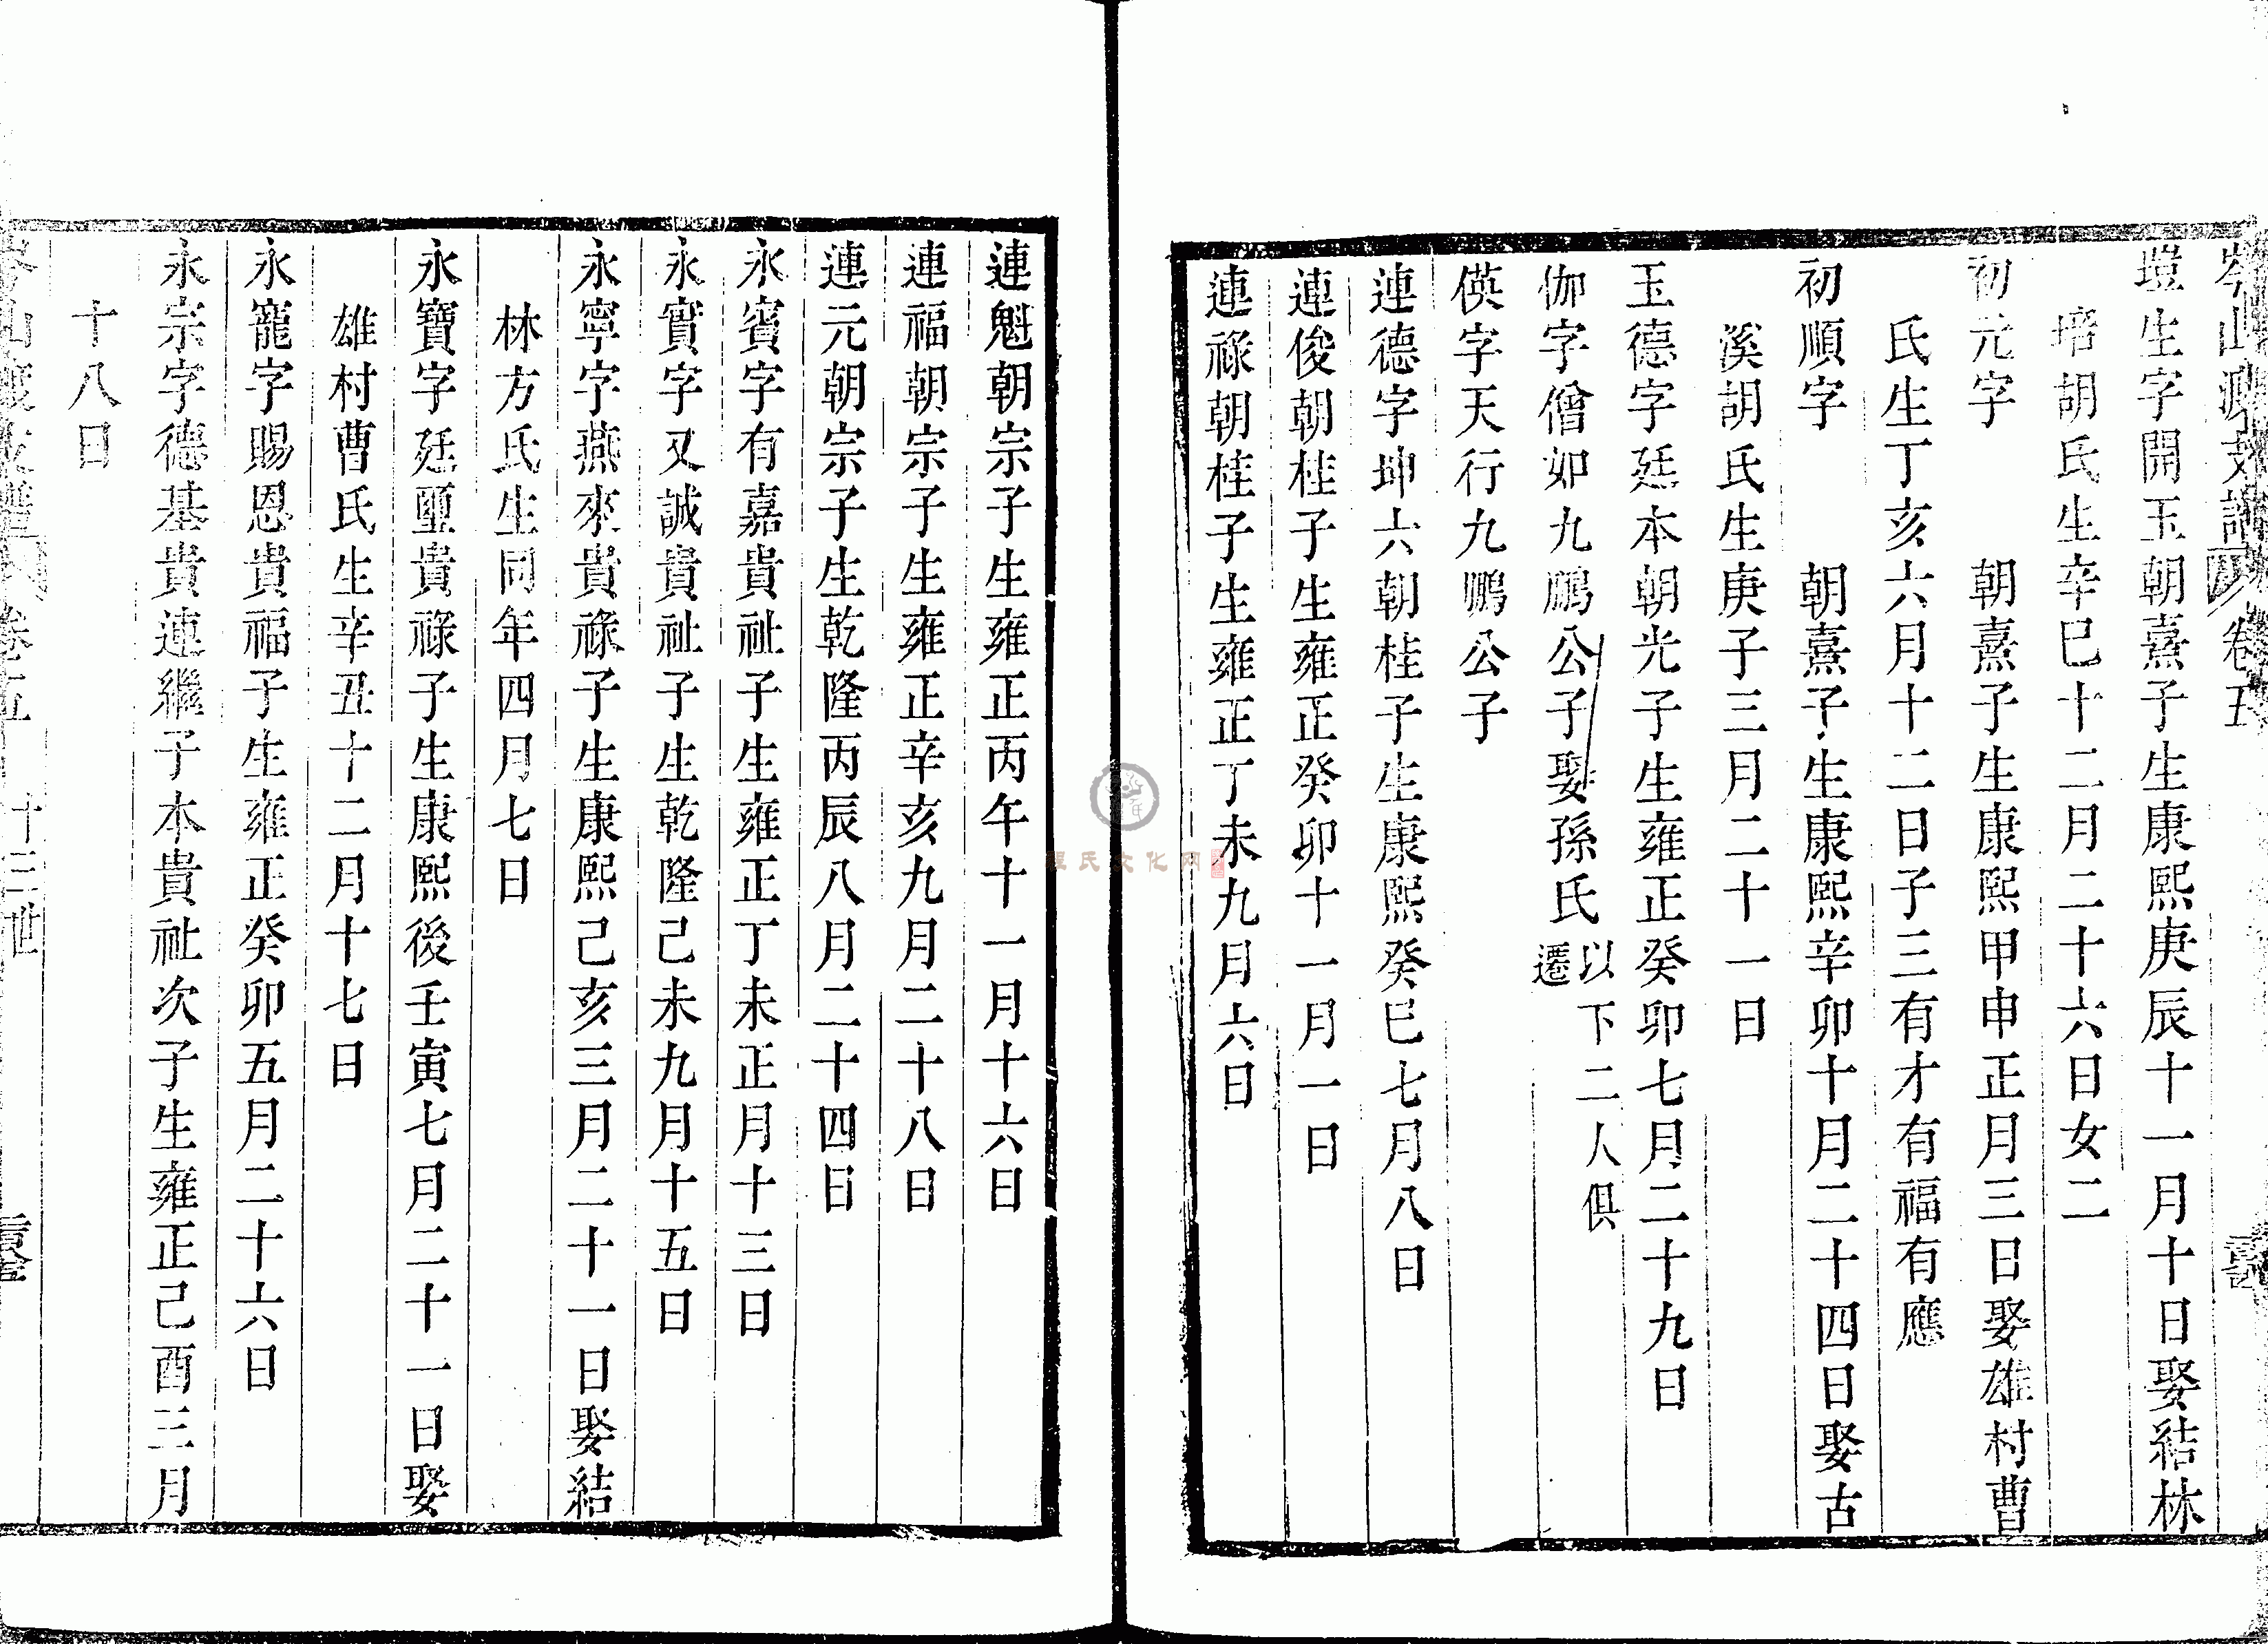 岑山渡支譜 卷五
塏生字開玉朝熹子生康熙庚辰十一月十日娶結林
培胡氏生辛巳十二月二十六日女二
初元字 朝熹子生康熙甲申正月三日娶雄村曹
氏生丁亥六月十二日子三有才有福有應
初順字 朝熹子生康熙辛卯十月二十四日娶古
溪胡氏生庚子三月二十一日
玉德字廷本朝光子生雍正癸卯七月二十九日
伽字僧如九鵬公子娶孫氏以下二人俱遷
偀字天行九鵬公子
連德字坤六朝桂子生康熙癸巳七月八日
連俊朝桂子生雍正癸卯十一月一日
連祿朝桂子生雍正丁未九月六日
連魁朝宗子生雍正丙午十一月十六日
連福朝宗子生雍正辛亥九月二十八日
連元朝宗子生乾隆丙辰八月二十四日
永賓字有嘉貴祉子生雍正丁未正月十三日
永實字又誠貴祉子生乾隆己未九月十五日
永寧字燕來貴祿子生康熙己亥三月二十一日娶結
林方氏生同年四月七日
永寶字廷璽貴祿子生康熙後壬寅七月二十一日娶
雄村曹氏生辛丑十二月十七日
永寵字賜恩貴福子生雍正癸卯五月二十六日
永宗字德基貴連繼子本貴祉次子生雍正己酉三月
十八日
岑山渡支譜 卷五 十三世
程氏文化网